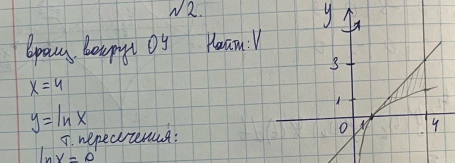 №2.
вращ. вокруг ОУ Найти: V
x = 4
y = ln x
т. пересечения:
ln x = 0
y
3
1
0 1 4